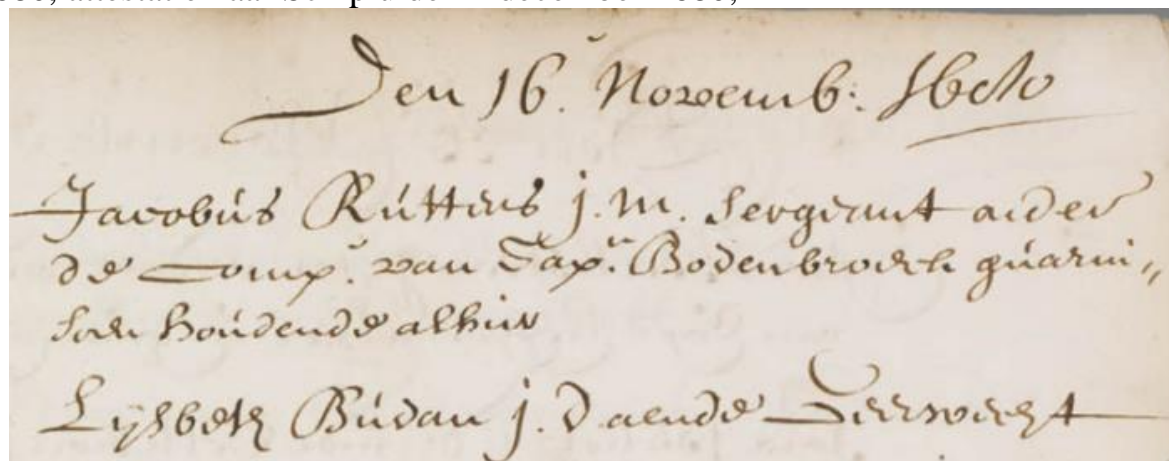 Den 16. Novemb: 1680
Jacobús Rúttens j.m. Sergeant onder
de Comp. van Cap.n Bodenbroeck gúarni„
soen hoúdende alhier
Lijsbeth Búdan j. d aende